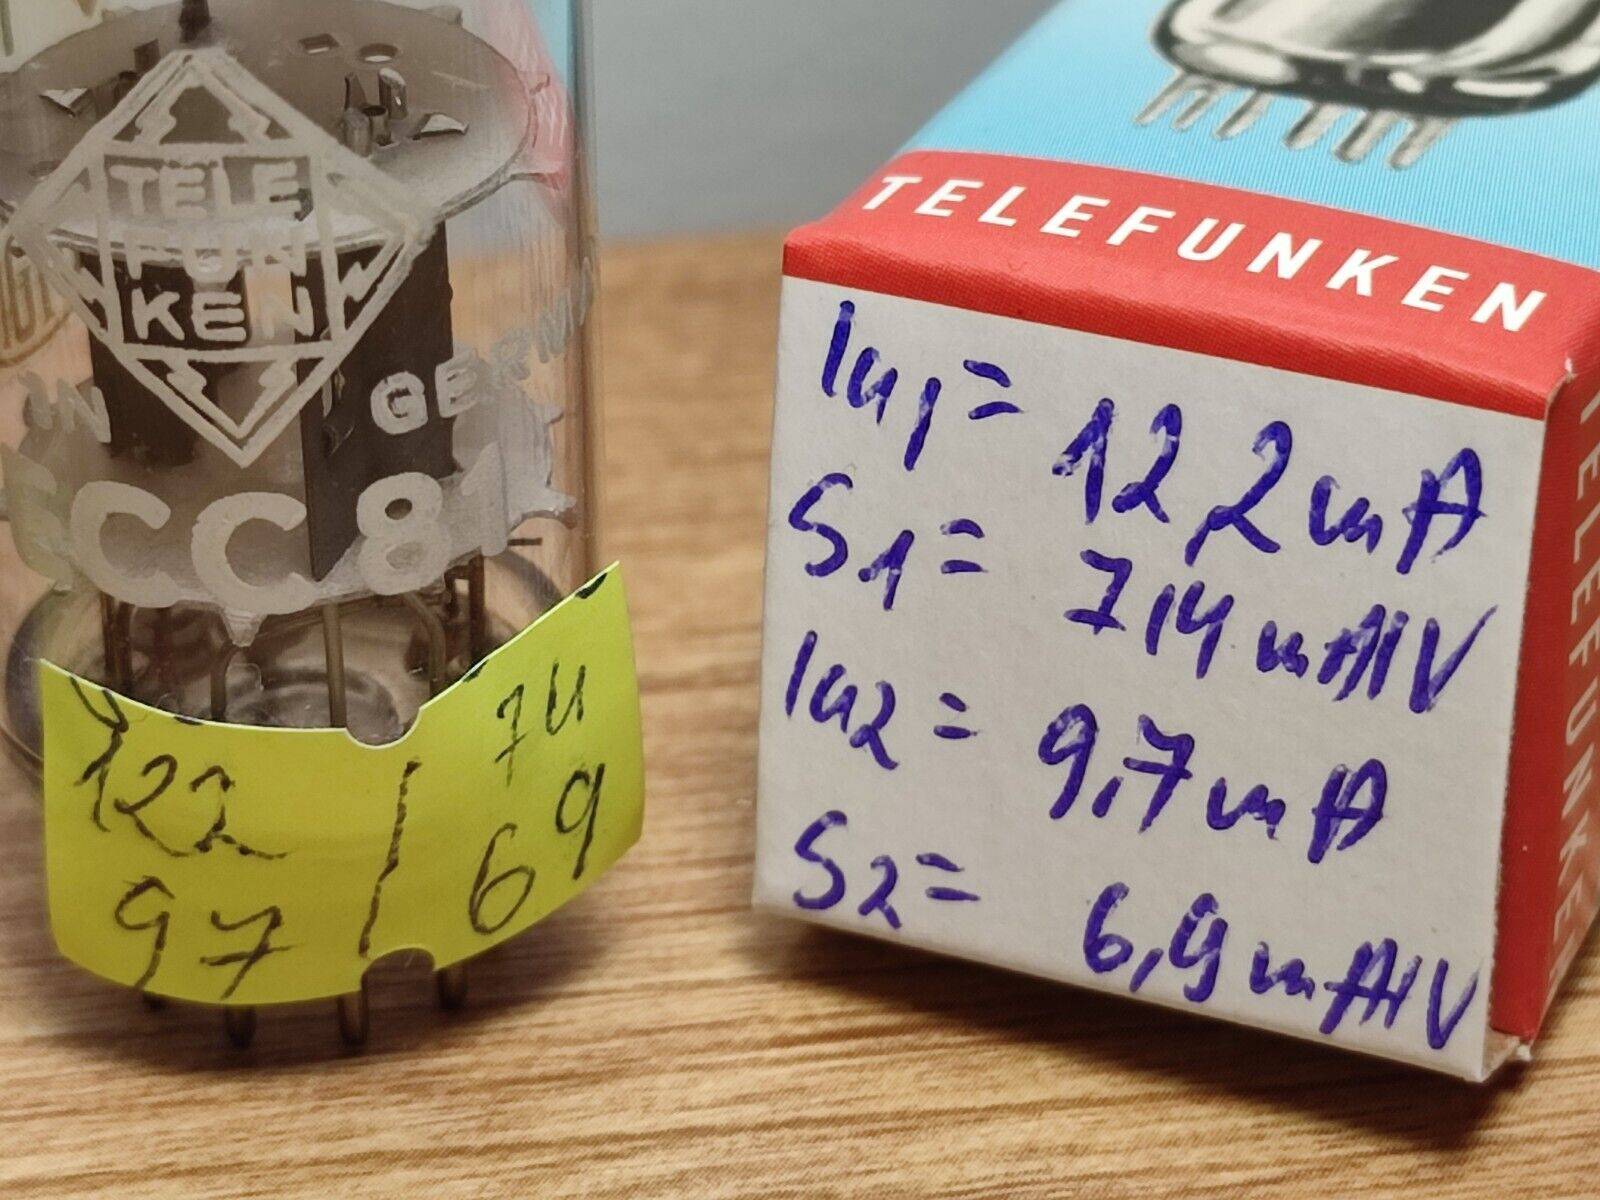 TELE
FUN
KEN
IN
GERM
ECC 81
122 / 74
97 / 69
TELEFUNKEN
Ia1 = 12,2 mA
S1 = 7,4 mA/V
Ia2 = 9,7 mA
S2 = 6,9 mA/V
TELEFUNKEN